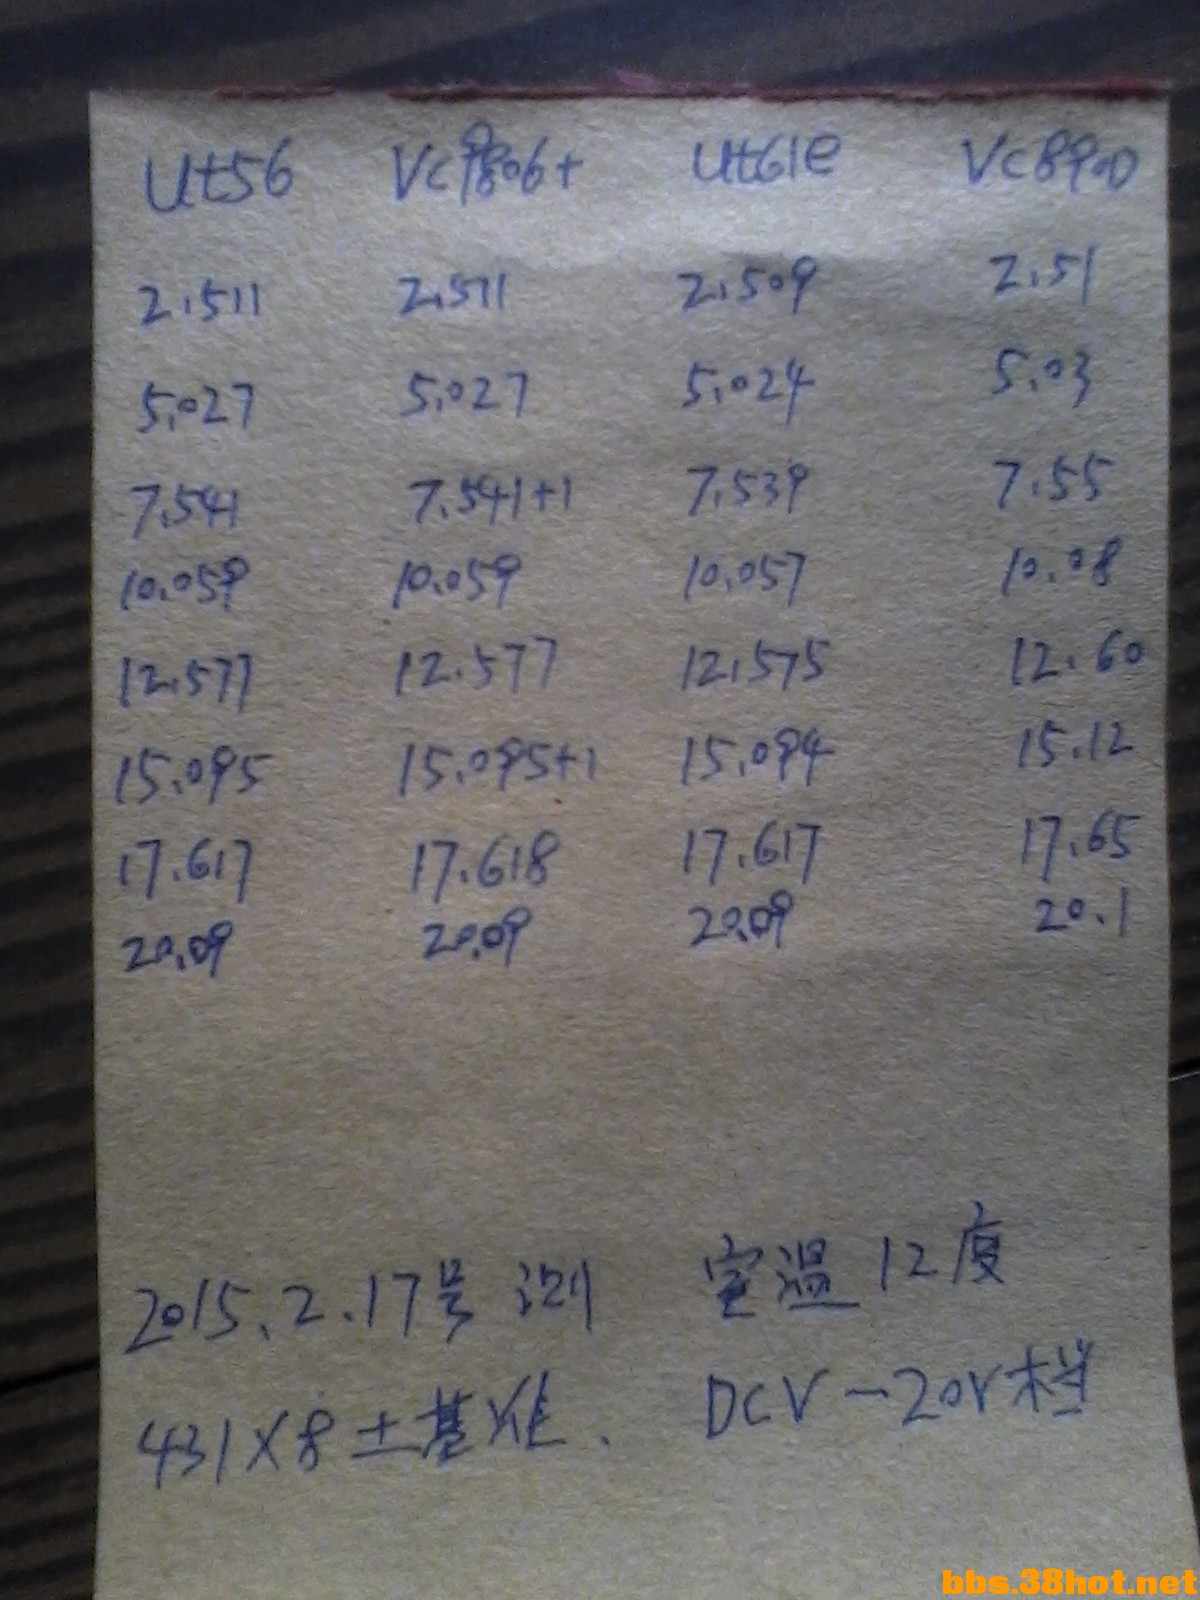 Ut56 Vc9806+ Ut61e Vc890D
2.511 2.511 2.509 2.51
5.027 5.027 5.024 5.03
7.541 7.541+1 7.539 7.55
10.059 10.059 10.057 10.08
12.577 12.577 12.575 12.60
15.095 15.095+1 15.094 15.12
17.617 17.618 17.617 17.65
20.09 20.09 20.09 20.1
2015.2.17号测 室温12度
431X8土基准. DCV-20V档
bbs.38hot.net